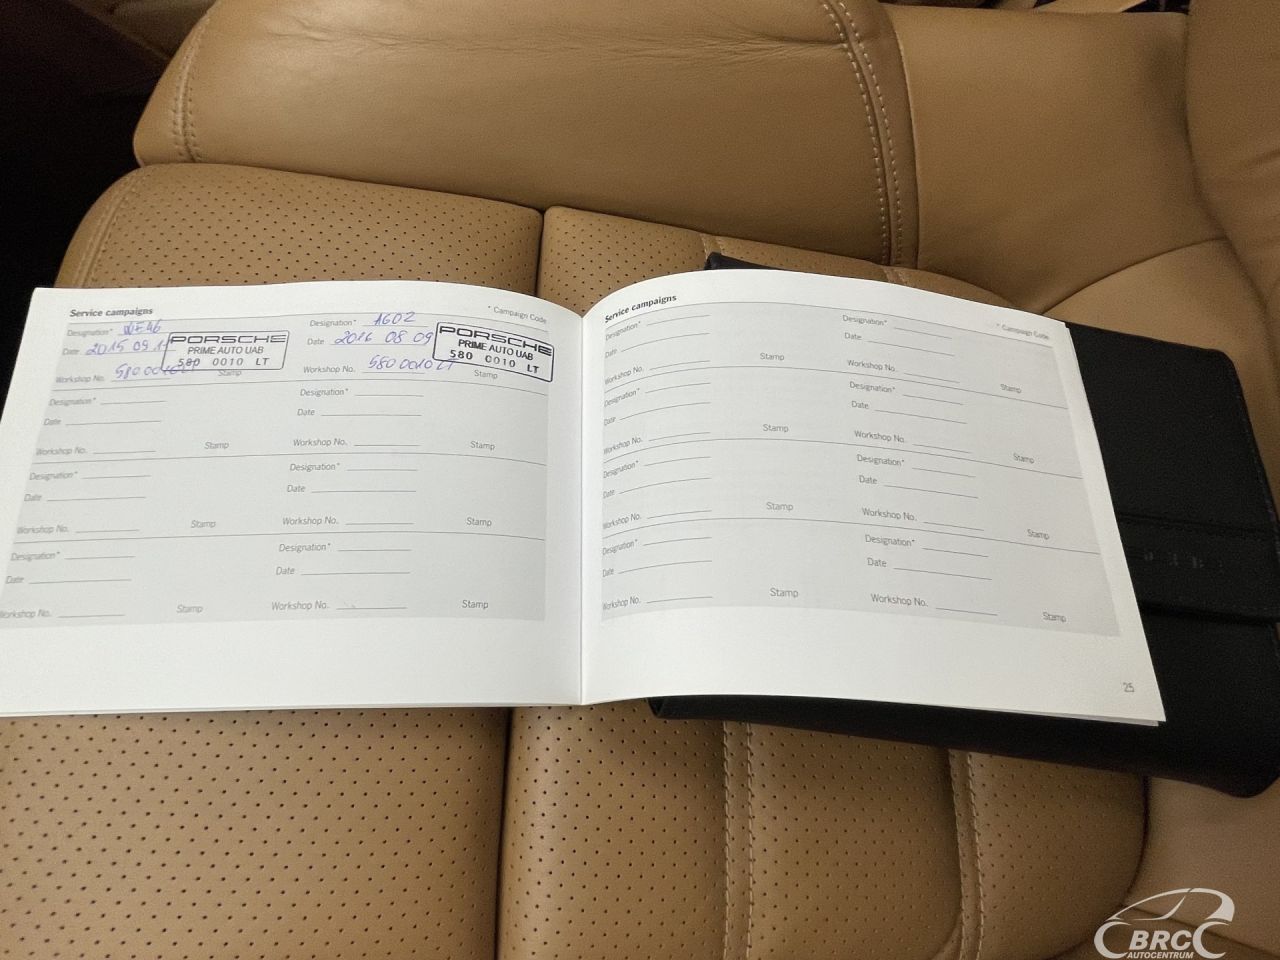 Service campaigns
* Campaign Code
Designation* WF46
Designation* AG02
Date 2015 09
Date 2016 08 09
PORSCHE
PRIME AUTO UAB
580 0010 LT
PORSCHE
PRIME AUTO UAB
580 0010 LT
Workshop No. Stamp
Workshop No. 5800010 LT Stamp
Designation*
Designation*
Date
Date
Workshop No. Stamp
Workshop No. Stamp
Designation*
Designation*
Date
Date
Workshop No. Stamp
Workshop No. Stamp
Designation*
Designation*
Date
Date
Workshop No. Stamp
Workshop No. Stamp
Service campaigns
* Campaign Code
Designation*
Designation*
Date
Date
Workshop No. Stamp
Workshop No. Stamp
Designation*
Designation*
Date
Date
Workshop No. Stamp
Workshop No. Stamp
Designation*
Designation*
Date
Date
Workshop No. Stamp
Workshop No. Stamp
Designation*
Designation*
Date
Date
Workshop No. Stamp
Workshop No. Stamp
25
BRC
AUTOCENTRUM